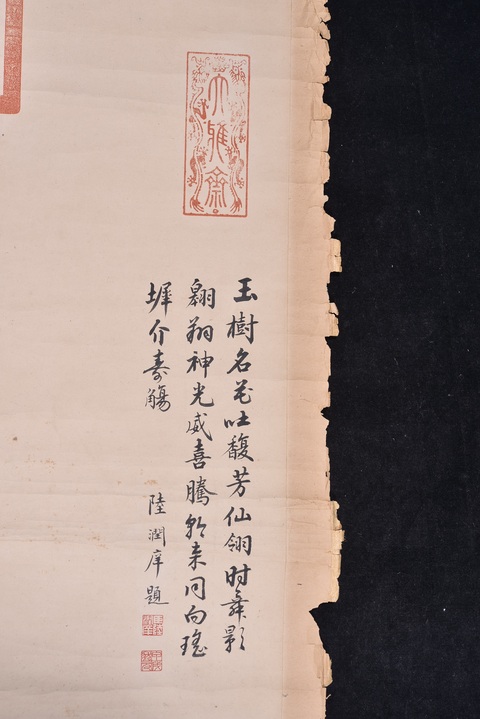 大雅齋
玉樹名花吐馥芳仙翎時舞影
翱翔神光咸喜騰軒來同向瑤
墀介壽觴
陸潤庠題